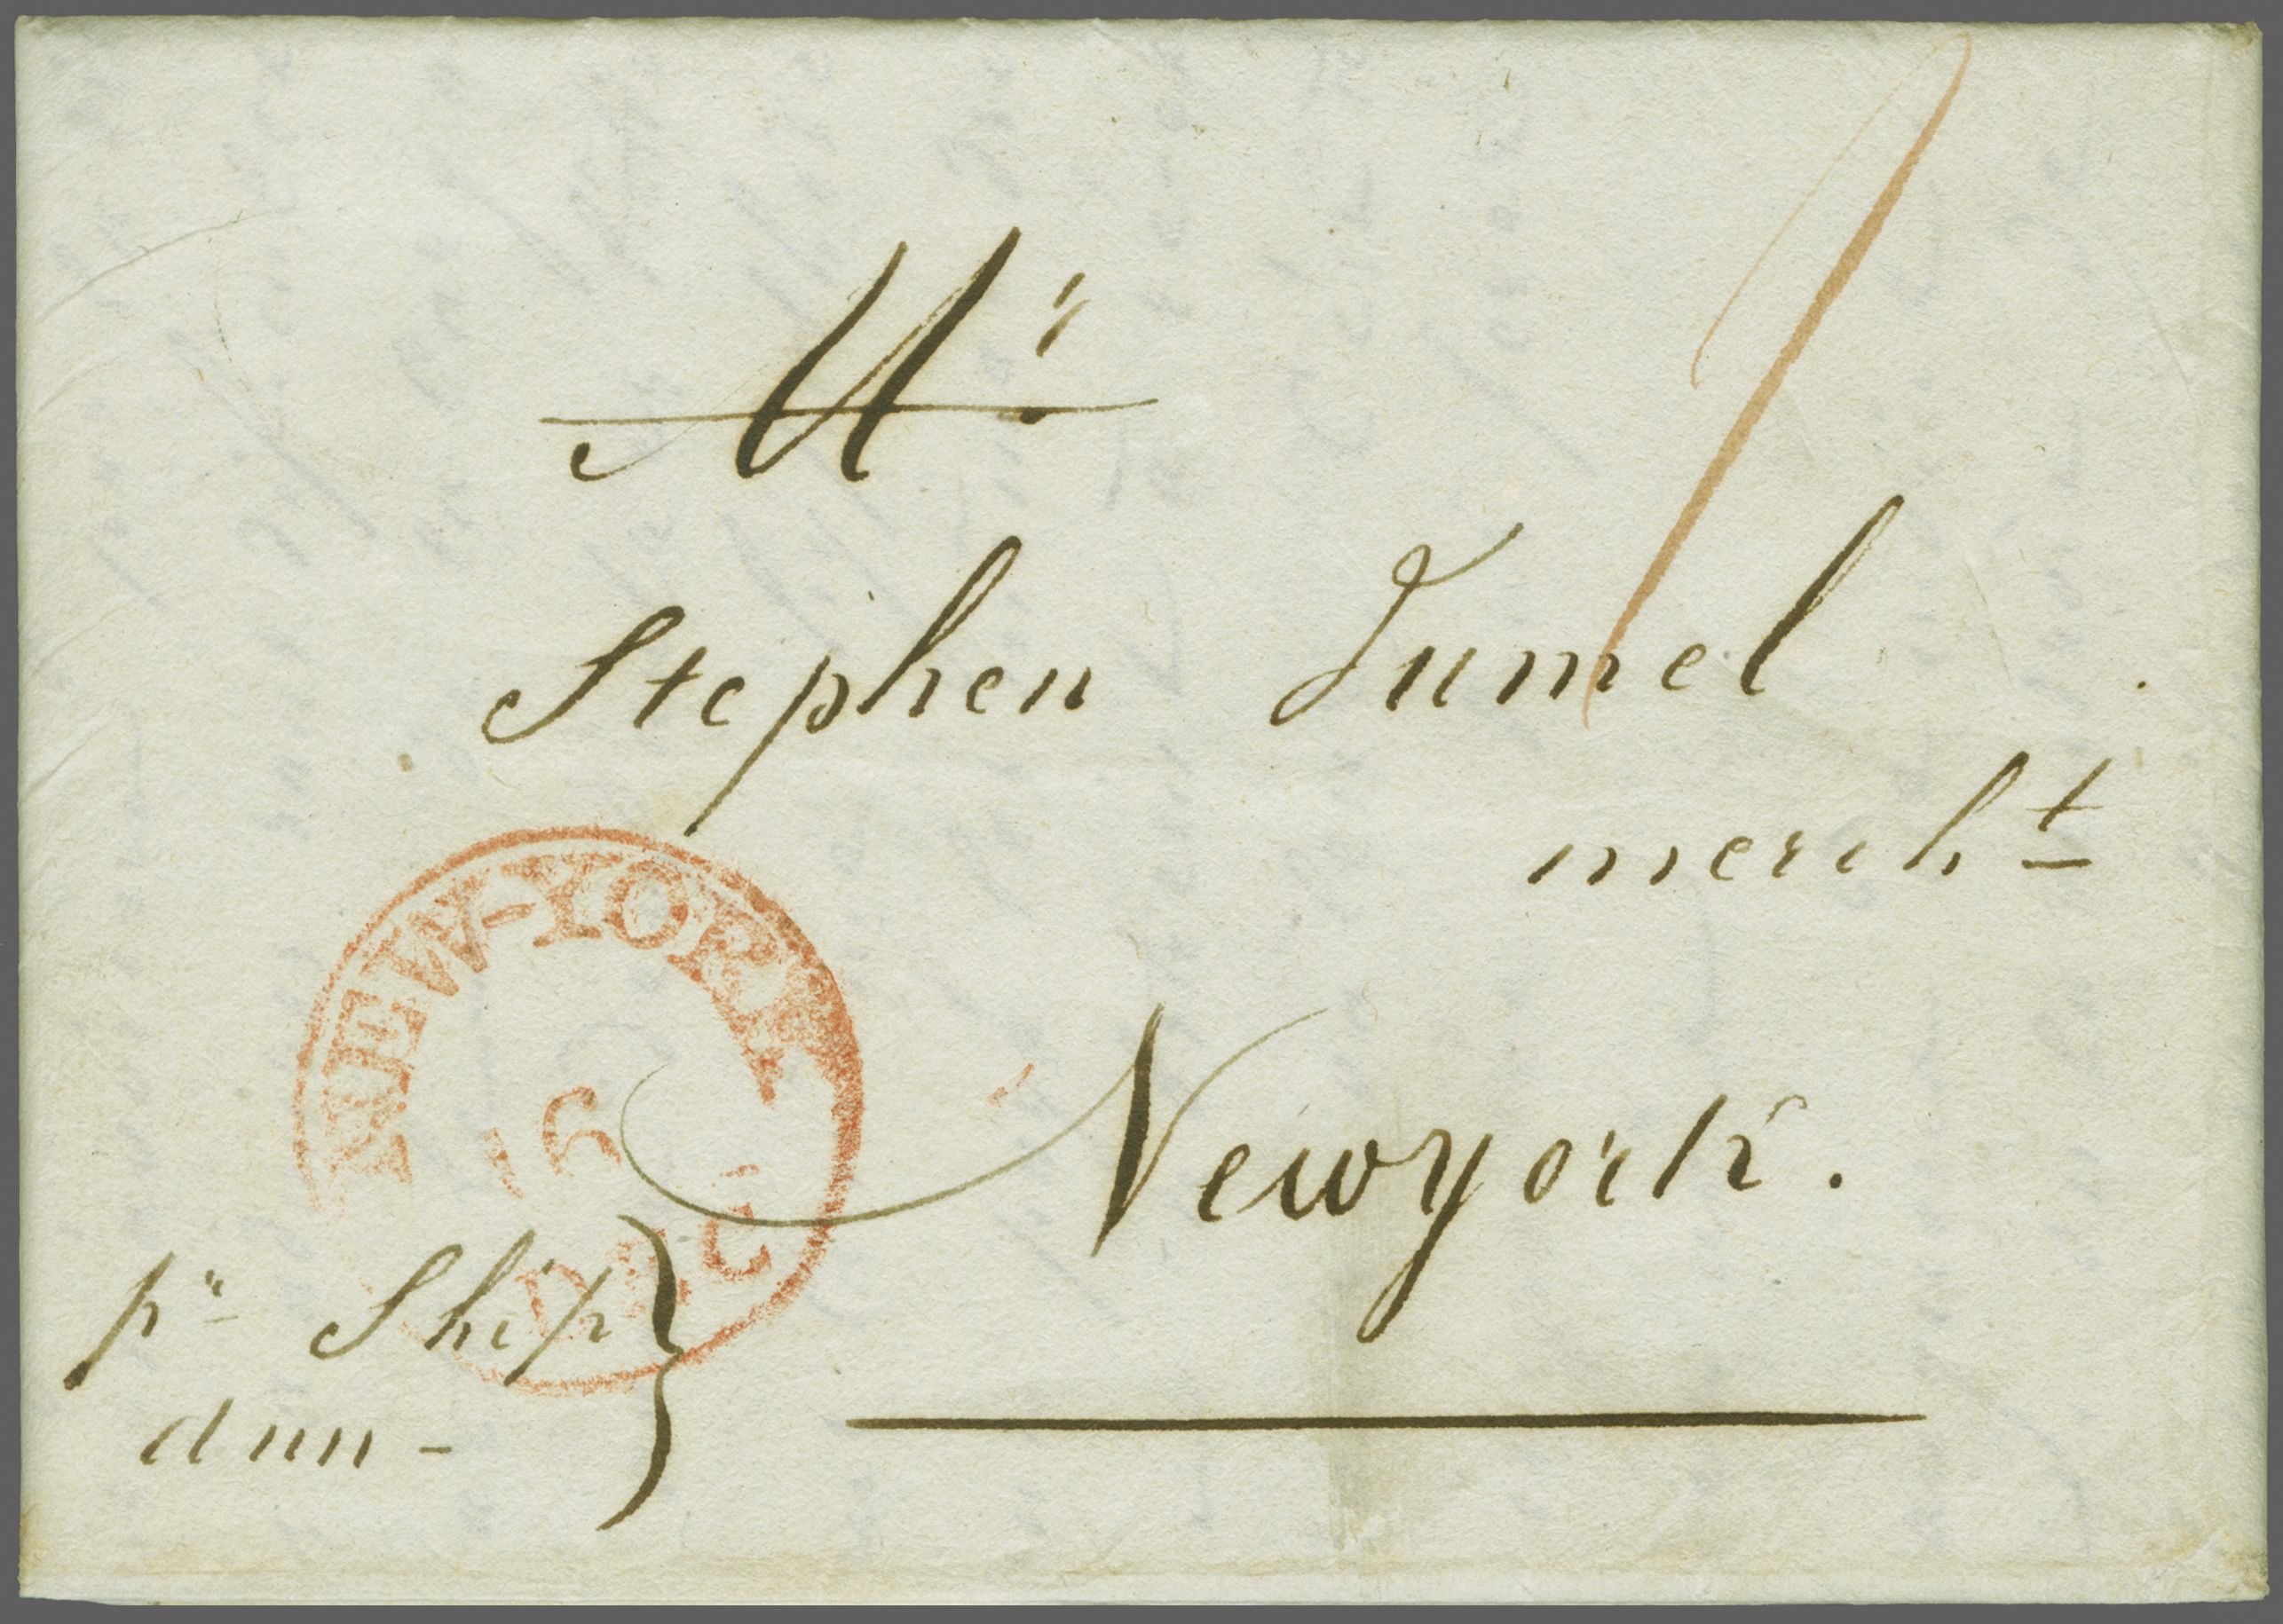 Mr.
Stephen Jumel
mercht
Newyork.
NEW-YORK
16
DEC
pr Ship
ann-